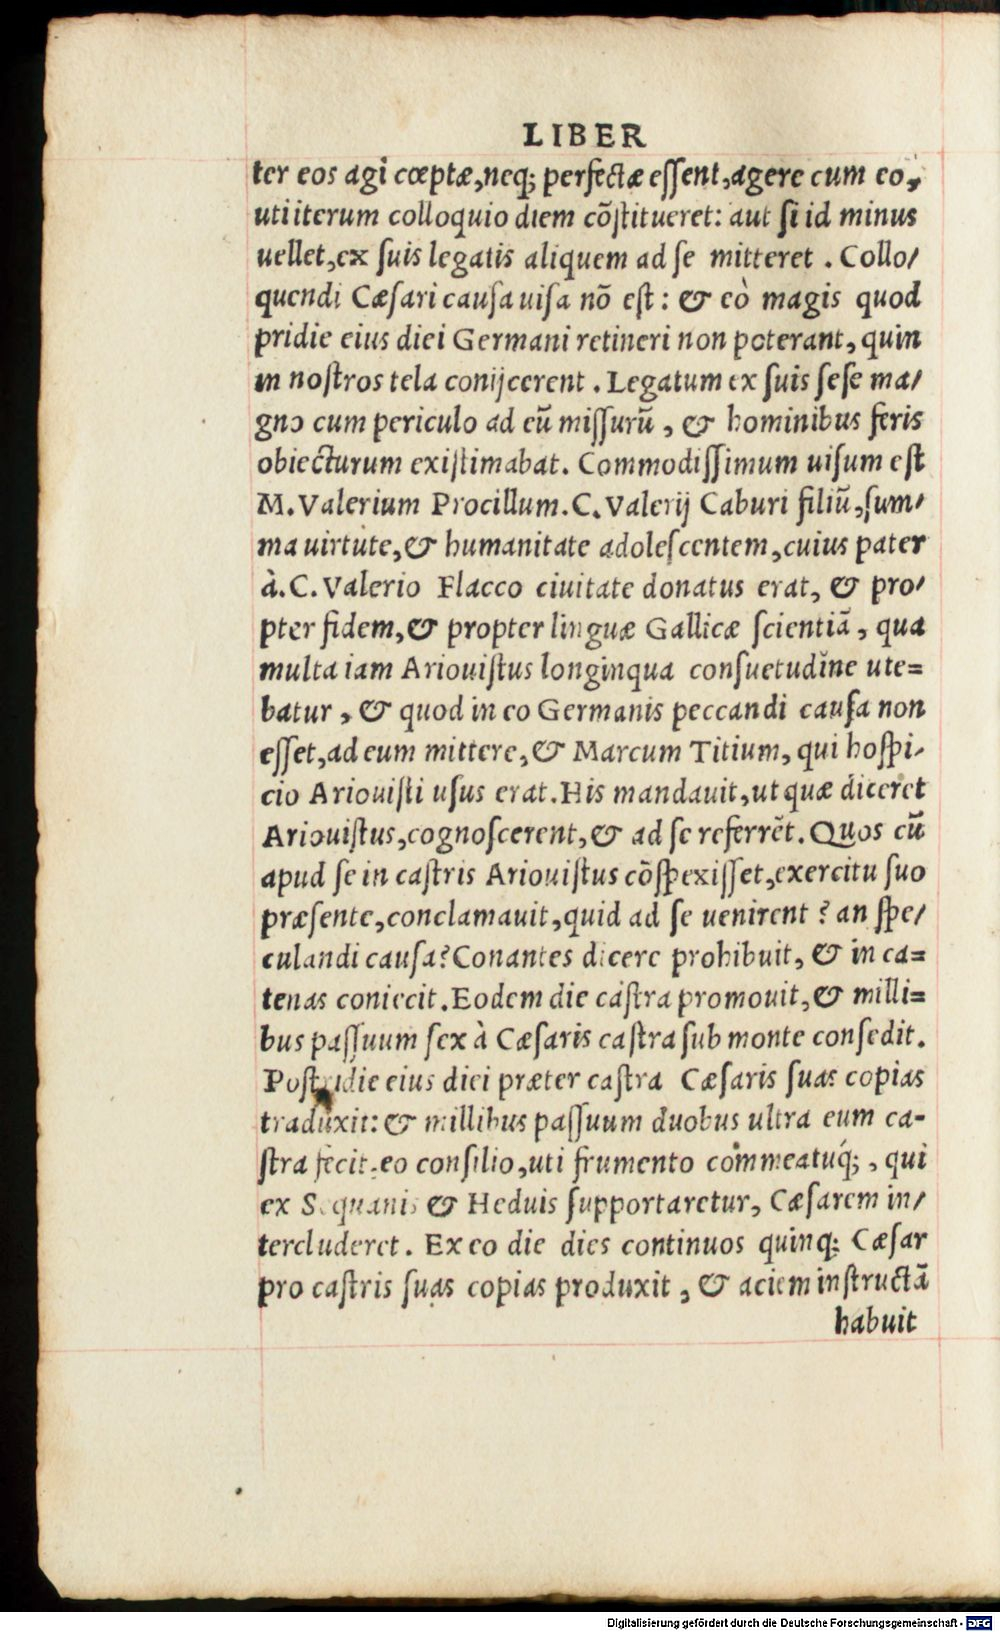 LIBER
ter eos agi cœptæ,neq; perfectæ eſſent,agere cum eo,
uti iterum colloquio diem cōſtitueret: aut ſi id minus
uellet,ex ſuis legatis aliquem ad ſe mitteret . Collo/
quendi Cæſari cauſa uiſa nō eſt: & eò magis quod
pridie eius diei Germani retineri non poterant, quin
in noſtros tela conijcerent . Legatum ex ſuis ſeſe ma/
gno cum periculo ad eū miſſurū , & hominibus feris
obiecturum exiſtimabat. Commodiſſimum uiſum eſt
M. Valerium Procillum. C. Valerij Caburi filiū,ſum/
ma uirtute,& humanitate adoleſcentem,cuius pater
à. C. Valerio Flacco ciuitate donatus erat, & pro/
pter fidem,& propter linguæ Gallicæ ſcientiā , qua
multa iam Ariouiſtus longinqua conſuetudine ute=
batur , & quod in eo Germanis peccandi cauſa non
eſſet,ad eum mittere,& Marcum Titium, qui hoſpi/
cio Ariouiſti uſus erat. His mandauit,ut quæ diceret
Ariouiſtus,cognoſcerent,& ad ſe referrēt. Quos cū
apud ſe in caſtris Ariouiſtus cōſpexiſſet,exercitu ſuo
præſente,conclamauit,quid ad ſe uenirent ? an ſpe/
culandi cauſa? Conantes dicere prohibuit, & in ca=
tenas coniecit. Eodem die caſtra promouit,& milli=
bus paſſuum ſex à Cæſaris caſtra ſub monte conſedit.
Poſtridie eius diei præter caſtra Cæſaris ſuas copias
traduxit: & millibus paſſuum duobus ultra eum ca-
ſtra fecit,eo conſilio,uti frumento commeatuq́; , qui
ex Sequanis & Heduis ſupportaretur, Cæſarem in/
tercluderet. Ex eo die dies continuos quinq; Cæſar
pro caſtris ſuas copias produxit , & aciem inſtructā
habuit
Digitalisierung gefördert durch die Deutsche Forschungsgemeinschaft - DFG